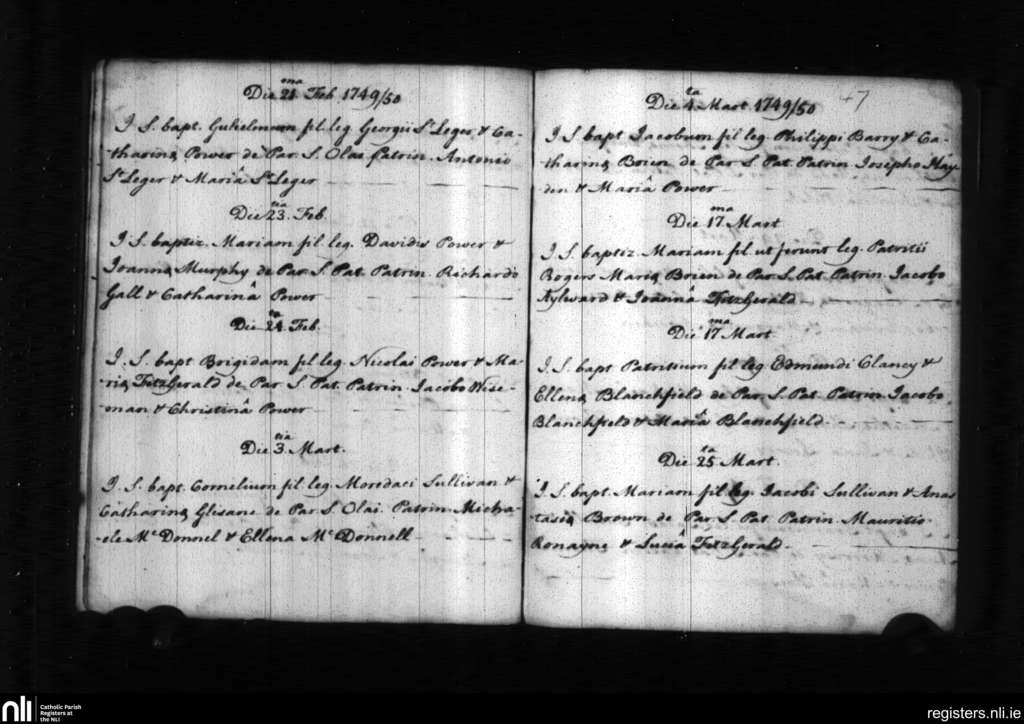 Die 21.ma Feb 1749/50
J. S. bapt. Gulielmum fil leg Georgii St Leger & Ca-
tharinæ Power de Par. S. Olai Patrin. Antonio
St Leger & Mariâ St Leger
Die 23.tia Feb.
J. S. baptiz. Mariam fil leg. Davidis Power &
Joannæ Murphy de Par. S. Pat. Patrin. Richardo
Gall & Catharinâ Power
Die 24.ta Feb.
J. S. bapt Brigidam fil leg. Nicolai Power & Ma-
riæ FitzGerald de Par. S. Pat. Patrin. Jacobo Wise-
man & Christinâ Power
Die 3.tia Mart.
J. S. bapt. Cornelium fil leg. Moredaci Sullivan &
Catharinæ Glisane de Par S. Olai. Patrin. Micha-
ele Mc Donnel & Ellena Mc Donnell
47
Die 4.ta Mart 1749/50
J S. bapt Jacobum fil leg Philippi Barry & Ca-
tharinæ Brien de Par S. Pat. Patrin Josepho Hay-
den & Mariâ Power
Die 17ma Mart
J S. baptiz Mariam fil ut ferunt leg. Patritii
Rogers Mariæ Brien de Par. S. Pat. Patrin. Jacobo
Aylward & Joannâ FitzGerald
Die 17ma Mart
J. S. bapt Patritium fil leg Edmundi Clancy &
Ellenæ Blanchfield de Par. S. Pat. Patrin. Jacobo
Blanchfield & Mariâ Blanchfield.
Die 25ta Mart.
J. S. bapt. Mariam fil leg. Jacobi Sullivan & Anas
tasiæ Brown de Par. S. Pat Patrin. Mauritio
Ronayne & Luciâ FitzGerald.
nli Catholic Parish
Registers at
the NLI
registers.nli.ie